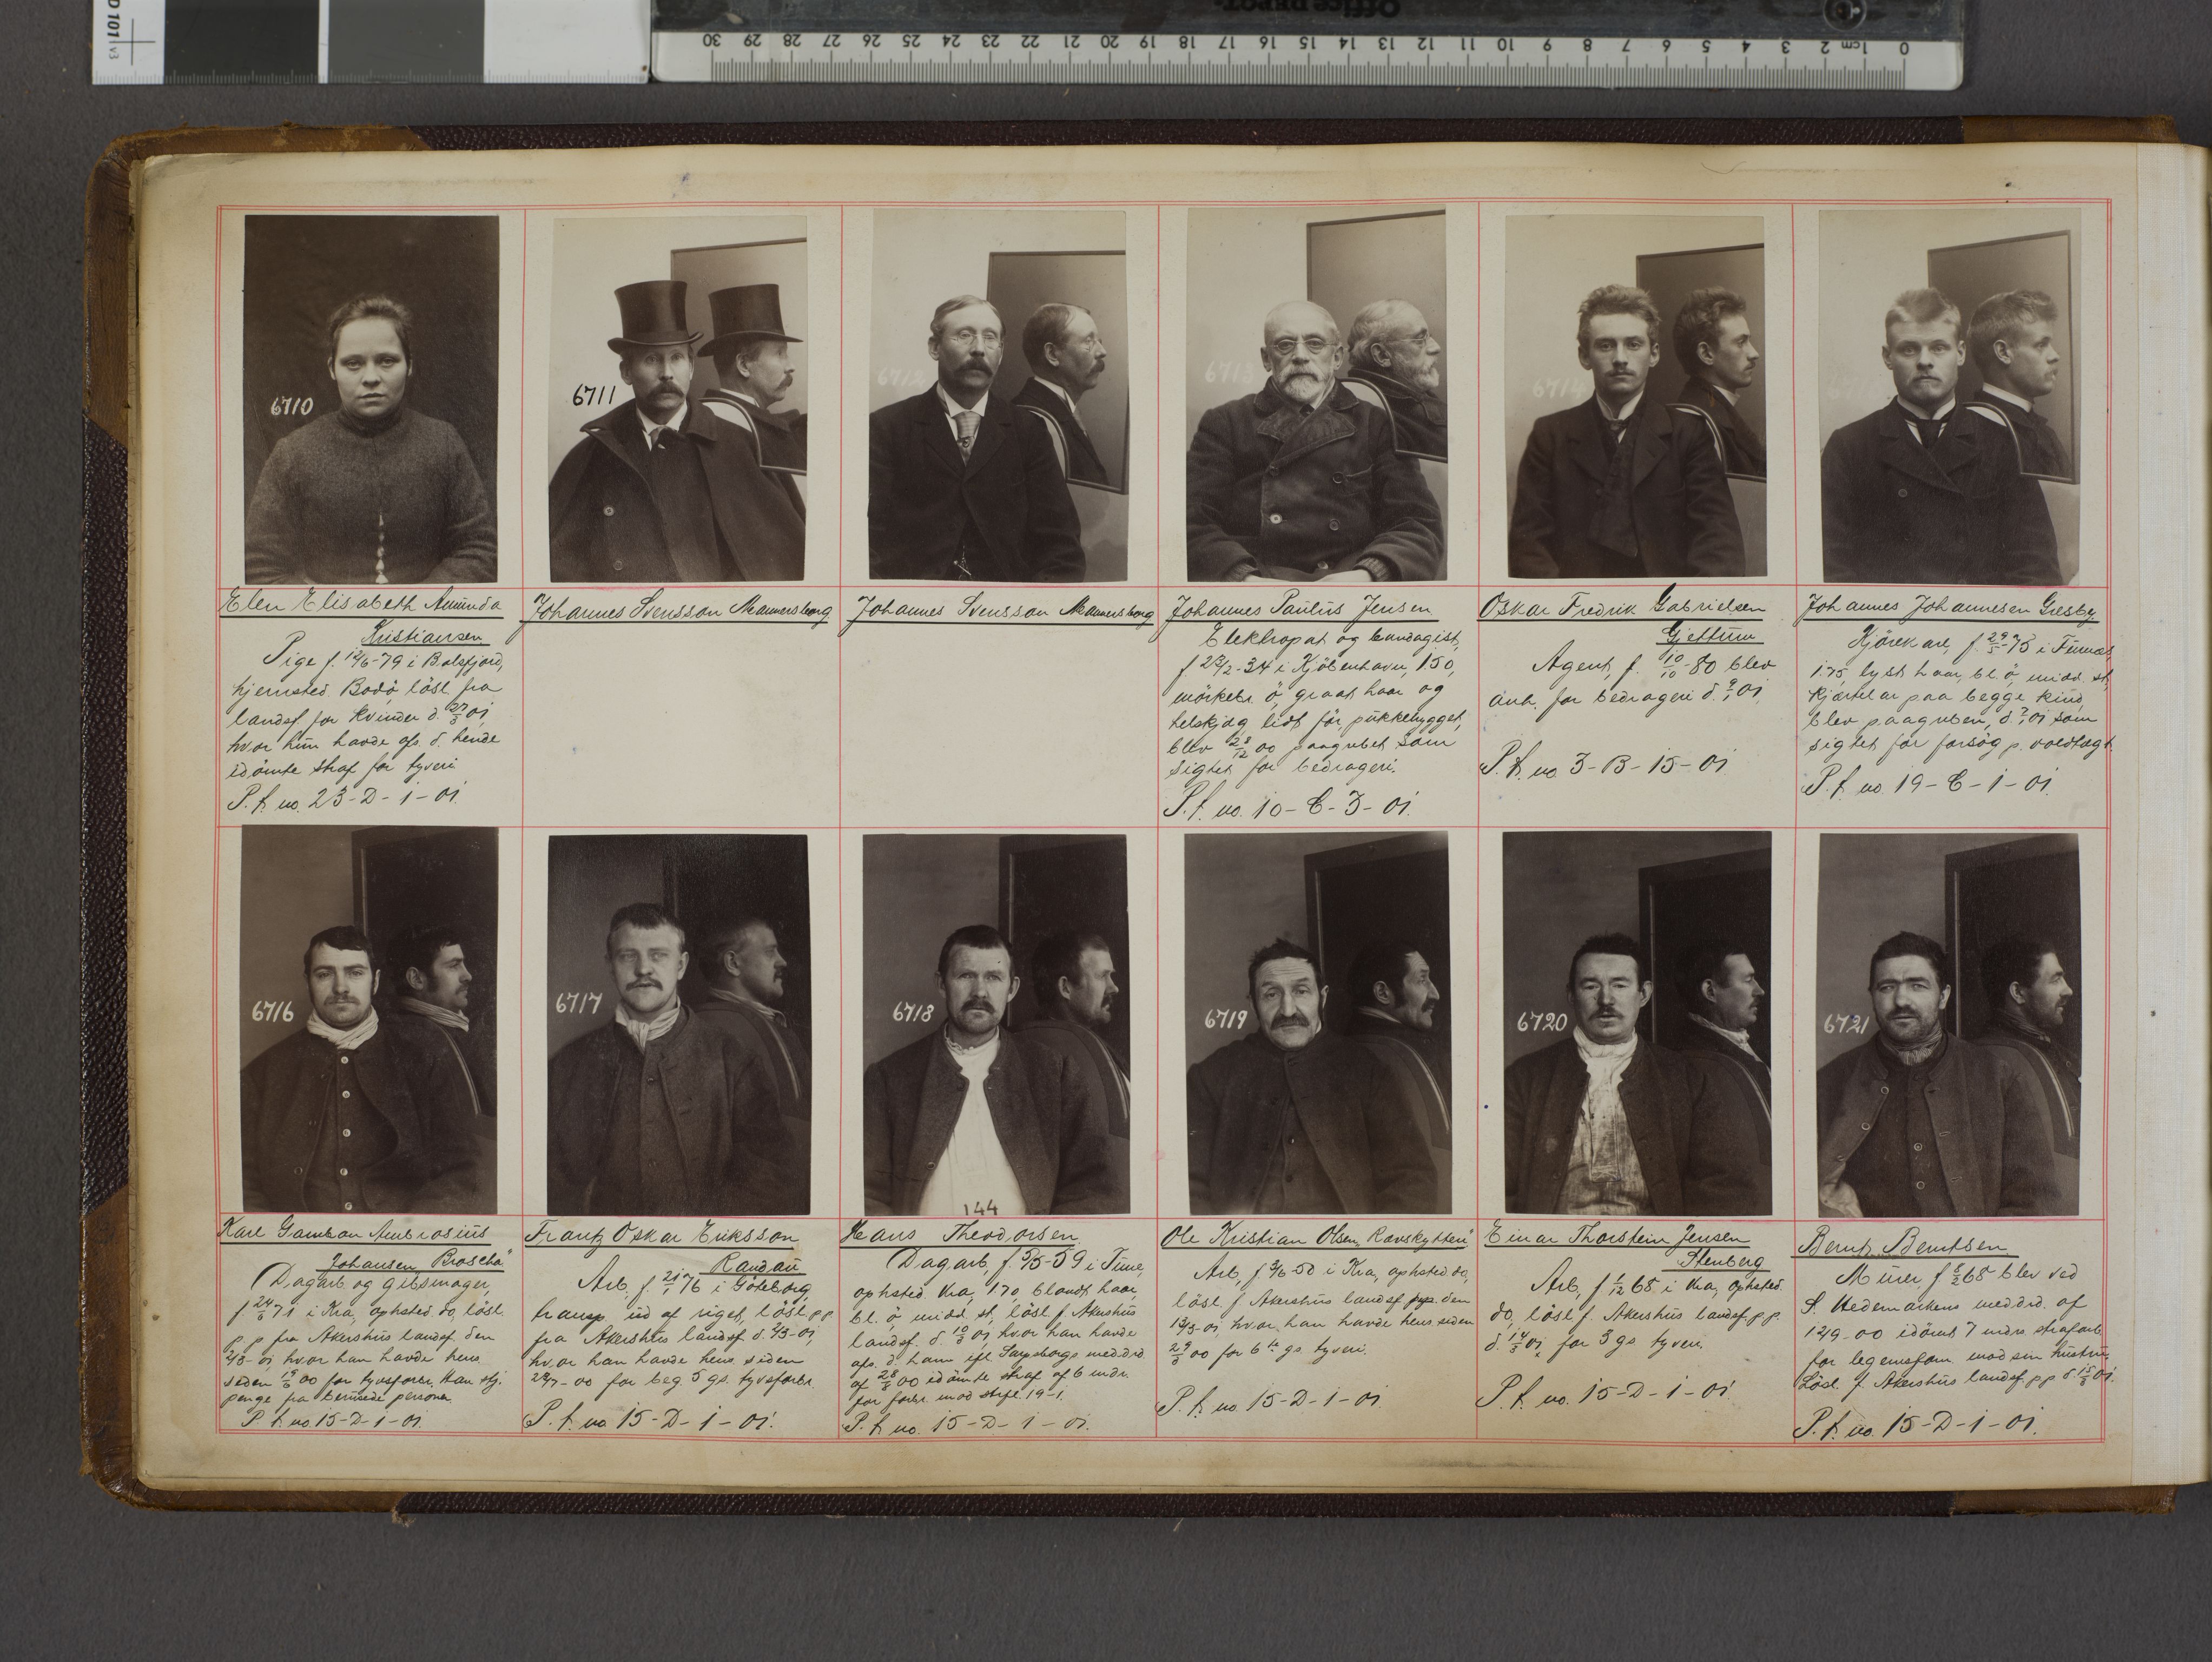 D 101 v3
Office DEPOT
30 29 28 27 26 25 24 23 22 21 20 19 18 17 16 15 14 13 12 11 10 9 8 7 6 5 4 3 2 1cm 0
6710
Elen Elisabeth Amunda
Kristiansen
Pige f. 12/6-79 i Balsfjord,
hjemsted Bodö, lösl. fra
landsf. for kvinder d. 27/3 01,
hvor hun havde afs. d. hende
idömte straf for tyveri
P. f. no. 23-D-1-01.
6711
Johannes Svensson Mannersborg
6712
Johannes Svensson Mannersborg
6713
Johannes Paulus Jensen
Elektropat og bandagist,
i Kjöbenhavn, 1.50,
mörkebr. ö, graat haar og
helskjæg, lidt för pukkelrygget,
blev 28/12 00 paagrebet som
sigtet for bedrageri.
P. f. no. 10-C-3-01.
6714
Oskar Fredrik Gabrielsen
Gjettum
Agent, f. 10/10-80 blev
anh. for bedrageri d. 9/1 01
P. f. no 3-B-15-01
Johannes Johannesen Gresby
Kjörekarl, f. 29/5-75 i
1.75, lyst haar, bl. ö, midd. st,
kjertelar paa begge kind,
blev paagreben, d. 7/1 01 som
sigtet for forsög p. voldtægt.
P. f. no. 19-C-1-01.
6716
Karl Gamban Ambrosius
Johansen "Broscha"
Dagarb og gibsmager,
f 24/6 71 i Kra, ophsted. do, lösl.
p. p fra Akershus landsf. den
2/3-01, hvor han havde hens.
seden 19/6 00 for tyvsforbr. Han stj.
penge fra berusede personer.
P. f. no. 15-D-1-01.
6717
Frantz Oskar Eriksson
Randau
Arb, f. 21/1 76 i Göteborg,
transp. ud af riget, lösl. p.p
fra Akershus landsf d. 2/3-01,
hvor han havde hens. siden
28/7-00 for beg. 5 gs. tyvsforbr.
P. f. no. 15-D-1-01.
6718
144
Hans Theodorsen
Dagarb, f. 5/5-59 i Tune,
ophsted. Kra, 1.70, blondt haar,
bl. ö, midd. st, lösl. f Akershus
landsf. d. 10/3 01, hvor han havde
afs. d. ham ifl. Sarpsborgs meddrd
af 28/8 00 idömte straf af 6 mdr.
for forbr. mod strfl. 19-1.
P. f. no. 15-D-1-01.
6719
Ole Kristian Olsen, "Rævskytten"
Arb, f. 3/6-50 i Kra, ophsted. do,
lösl. f. Akershus landsf. p.p. den
13/3-01, hvor han havde hens. siden
29/3 00 for 6te gs. tyveri.
P. f. no. 15-D-1-01.
6720
Einar Thorstein Jensen
Stenberg
Arb, f 1/12 68 i Kra, ophsted.
do, lösl. f. Akershus landsf. p p.
d. 14/3 01, for 3 gs tyveri.
P. f. no. 15-D-1-01.
6721
Bernt Berntsen
Murer, f 8/2 68 blev ved
S. Hedemarkens meddrd. af
12/9-00 idömt 7 mdrs. strafarb.
for legemsforn. mod sin hustru,
Lösl. f. Akershus landsf. p p d. 15/3 01.
P. f. no. 15-D-1-01.